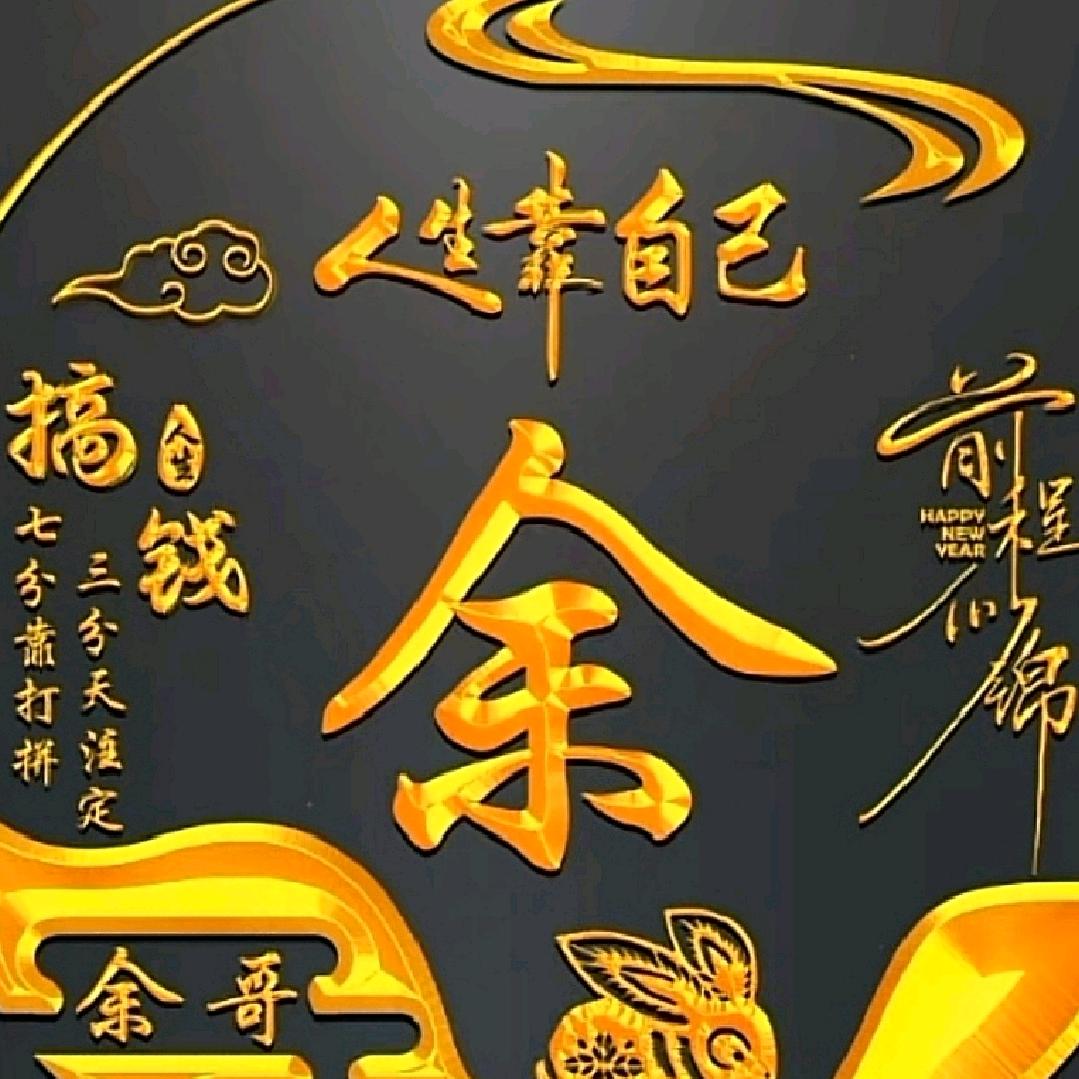 人生靠自己
搞
人生
钱
三分天注定
七分靠打拼
余
前程
HAPPY
NEW
YEAR
似锦
余哥